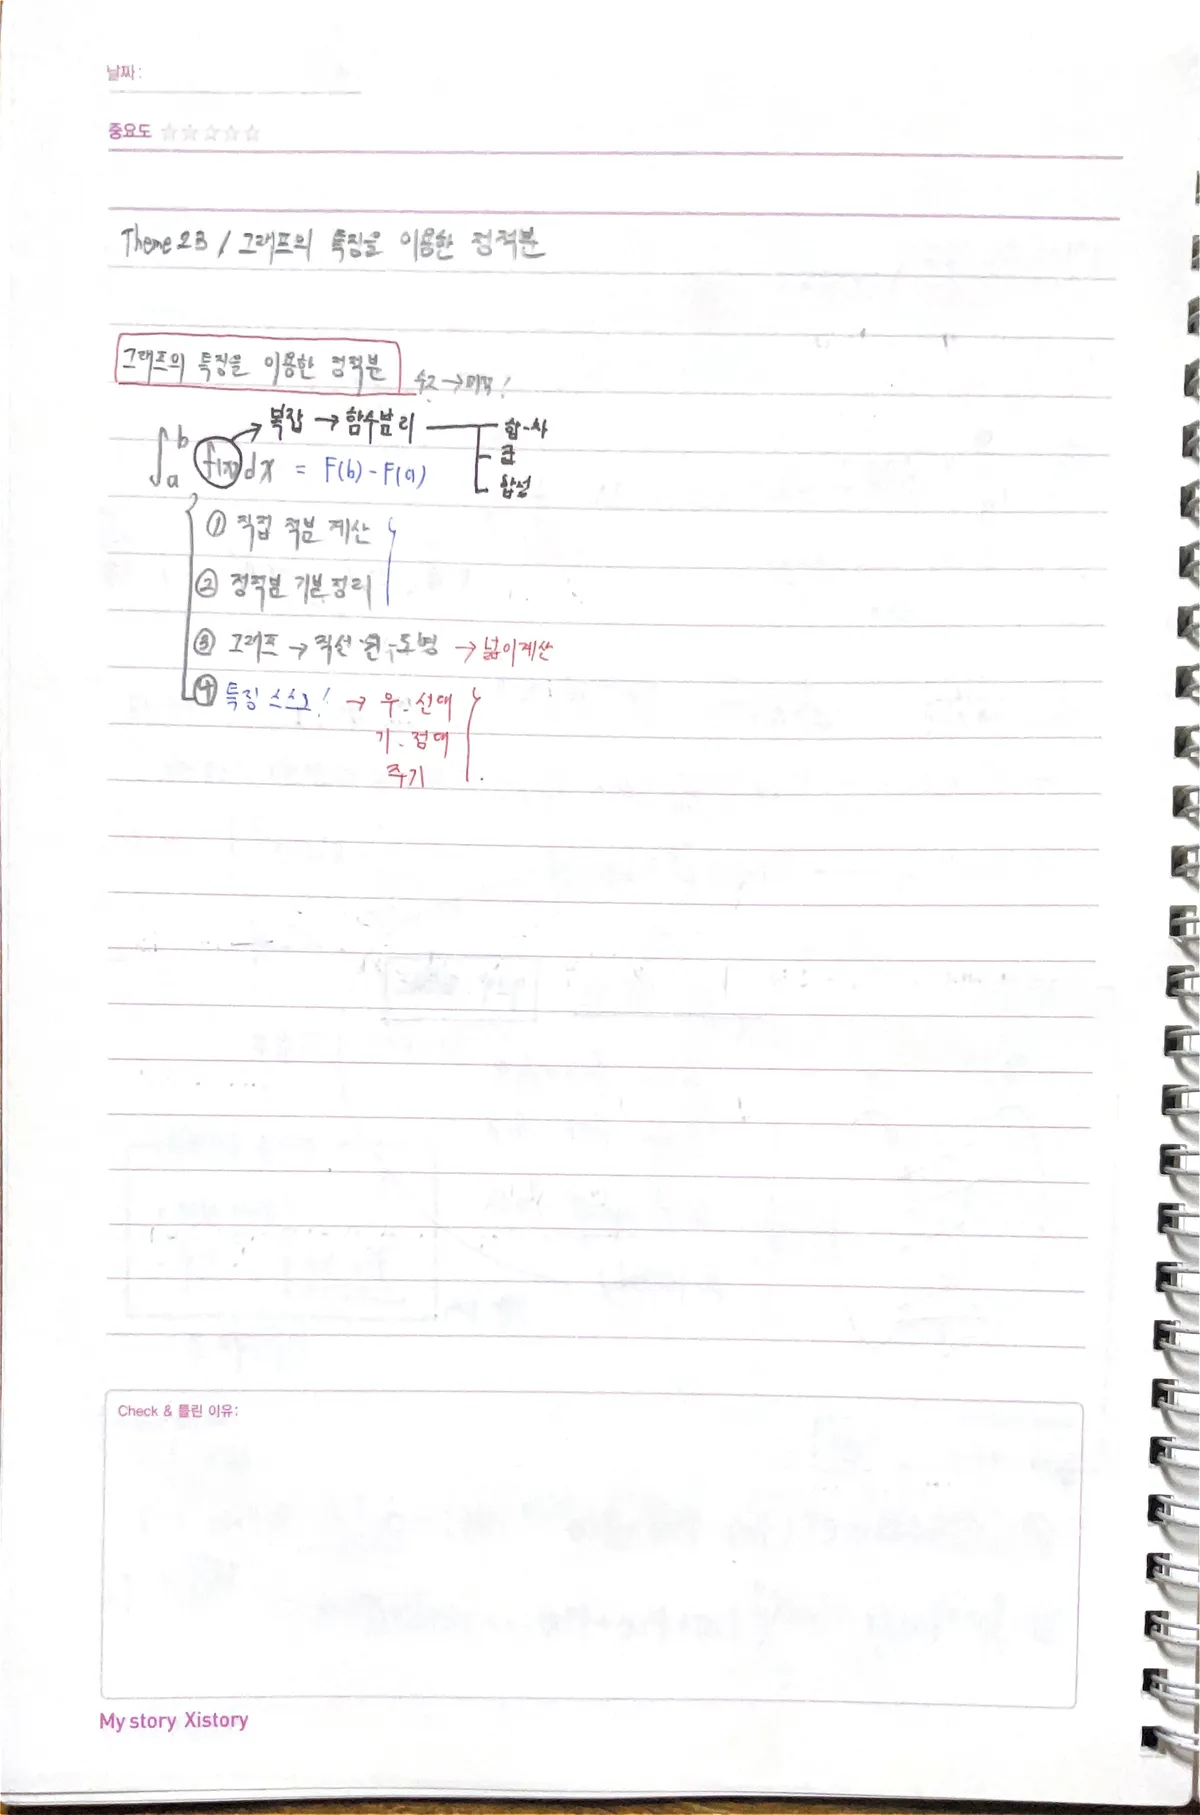 날짜:
중요도 ☆☆☆☆☆
Theme 23 / 그래프의 특징을 이용한 정적분
그래프의 특징을 이용한 정적분 수2 → 미적!
복잡 → 함수분리 합-차
곱
합성
∫ₐᵇ f(x) dx = F(b) - F(a)
① 직접 적분 계산
② 정적분 기본정리
③ 그래프 → 직선·원·도형 → 넓이계산
④ 특징 → 우-선대
기-점대
주기
Check & 틀린 이유:
My story Xistory